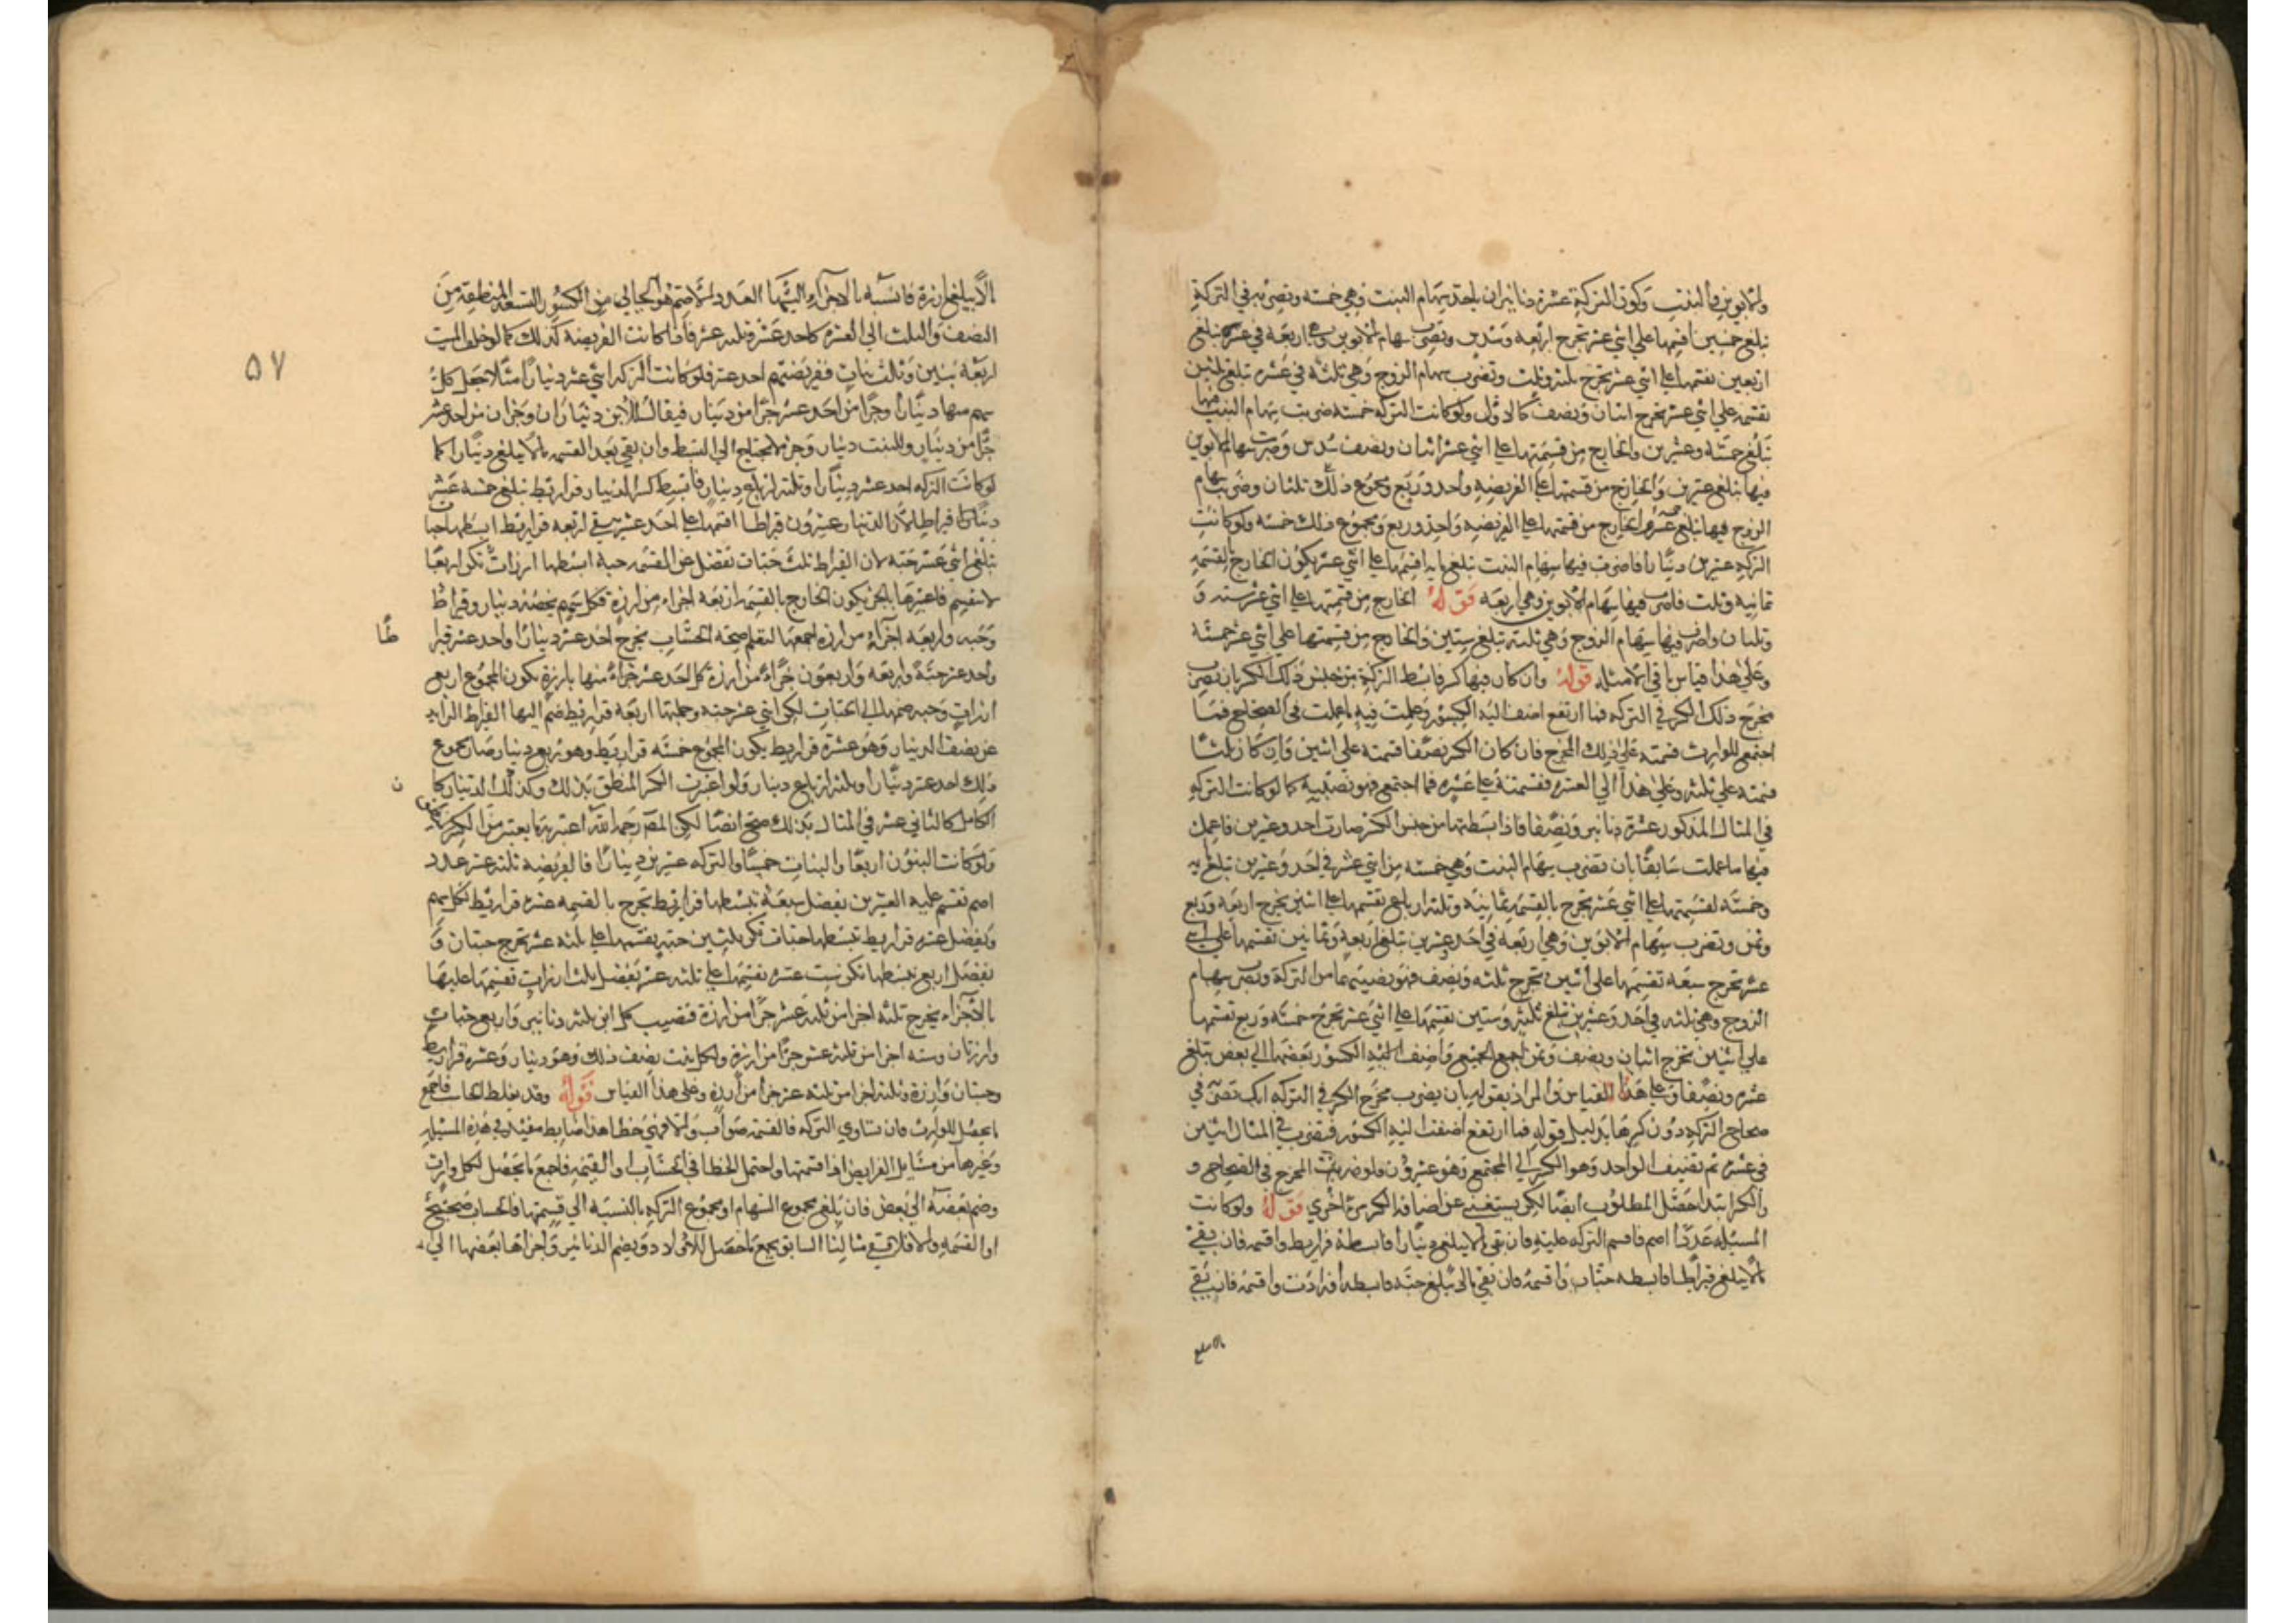 والابوين والبنت وتكون التركة عشرة دنانير ان ياخذ سهام البنت وهي خمسة وتضربه في التركة
تبلغ خمسين اقسمها علي اثني عشر تخرج اربعة وسدس وتضرب سهام الابوين وهي اربعة في عشرة تبلغ
اربعين تقسمها علي اثني عشر تخرج ثلثة وثلث وتضرب سهام الزوج وهي ثلثة في عشرة تبلغ ثلثين
تقسمه علي اثني عشر تخرج اثنان ونصف كالاول ولو كانت التركة خمسة ضربت سهام البنت فيها
تبلغ خمسة وعشرين والخارج من قسمتها علي اثني عشر اثنان ونصف سدس وضربت سهام الابوين
فيها تبلغ عشرين والخارج من قسمتها علي الفريضة واحد وربع ومجموع ذلك ثلثان وضرب سهام
الزوج فيها تبلغ خمسة عشر والخارج من قسمتها علي الفريضة واحد وربع ومجموع ذلك خمسة ولو كانت
التركة عشرين دينارا فاضرب فيها سهام البنت تبلغ مايه اقسمها علي اثني عشر يكون الخارج بالقسمة
ثمانية وثلث فاضرب فيها سهام الابوين وهي اربعة قوله الخارج من قسمتها علي اثني عشر ستة و
وثلثان واضرب فيها سهام الزوج وهي ثلثة تبلغ ستين والخارج من قسمتها علي اثني عشر خمسة
وعلي هذا قياس باقي الامثلة قوله وان كان فيها كسر فابسط التركة من جنس ذلك الكسر بان تضرب
مخرج ذلك الكسر في التركة فما ارتفع اضف اليه الكسور وعملت فيه ما عملت في الصحاح فما
اجتمع للوارث قسمته علي ذلك المخرج فان كان الكسر نصفا قسمته علي اثنين وان كان ثلثا
قسمته علي ثلثة وعلي هذا الي العشرة فقسمته علي عشرة فما اجتمع فهو نصيبه كما لو كانت التركة
في المثال المذكور عشرة دنانير ونصفا فاذا بسطتها من جنس الكسر صارت احد وعشرين فاعمل
فيها ما عملت سابقا بان تضرب سهام البنت وهي خمسة من اثني عشر في احد وعشرين تبلغ مايه
وخمسة تقسمتها علي اثني عشر تخرج بالقسمة ثمانية وثلثة ارباع تقسمها علي اثنين تخرج اربعة وربع
وثمن وتضرب سهام الابوين وهي اربعة في احد وعشرين تبلغ اربعة وثمانين تقسمها علي اثني
عشر تخرج سبعة تقسمها علي اثنين تخرج ثلثه ونصف فهو نصيبهما من التركة وتضرب سهام
الزوج وهي ثلثه في احد وعشرين تبلغ ثلثه وستين تقسمها علي اثني عشر تخرج خمسة وربع تقسمها
علي اثنين تخرج اثنان ونصف وثمن اجمع الجميع واضف اليه الكسور بعضها الي بعض تبلغ
عشرة ونصفا وعلي هذا القياس والمراد بقوله بان يضرب مخرج الكسر في التركة اي تضرب في
صحاح التركة دون كسرها بدليل قوله فما ارتفع اضفت اليه الكسور فتضرب في المثال اثنين
في عشرة ثم تضيف الواحد وهو الكسر الي المجتمع وهو عشرون ولو ضربت المخرج في الصحاح و
والكسر ابتدا حصل المطلوب ايضا لكن يستغني عن اضافة الكسر مرة اخري قوله ولو كانت
المسئلة عددا اصم فاقسم التركة عليه فان بقي ما لا يبلغ دينارا فابسطه قراريط واقسمه فان بقي
ما لا يبلغ قيراطا فابسطه حبات واقسمه فان بقي ما لا يبلغ حبة فابسطه ارزات واقسمه فان بقي
ما لا يبلغ
ما لا يبلغ ارزة فانسبه بالاجزاء اليها العدد الاصم هو الخالي من الكسور التسعة المنطقة من
النصف والثلث الي العشر كاحد عشر وثلثه عشر فاذا كانت الفريضة كذلك كما لو خلف الميت
اربعة بنين وثلث بنات ففريضتهم احد عشر فلو كانت التركة اثني عشر دينارا مثلا جعل كل
سهم منها دينارا وجزا من احد عشر جزا من دينار فيقال للابن ديناران وجزان من احد عشر
جزا من دينار وللبنت دينار وجزء لا يحتاج الي البسط وان بقي بعد القسمة ما لا يبلغ دينارا كما
لو كانت التركة احد عشر دينارا وثلثة ارباع دينار فابسط كسر الدينار قراريط تبلغ خمسة عشر
قيراطا لان الدينار عشرون قيراطا اقسمها علي احد عشر يبقي اربعة قراريط ابسطها حبات
تبلغ اثني عشر حبة لان القيراط ثلث حبات تفضل عن القسمة حبة ابسطها ارزات تكن اربعا
لا تنقسم فاعتبرها بالجزء يكون الخارج بالقسمة اربعة اجزاء من ارزة فكل سهم يخصه دينار وقيراط
وحبه واربعه اجزاء من ارزه اجمعها لتعلم صحة الحساب يخرج احد عشر دينارا واحد عشر قيرا
طا
واحد عشر حبة واربعة واربعون جزاء من ارزة كل احد عشر جزاء منها بارزة يكون المجموع اربع
ارزات وحبه ضمها الي الحبات لكن اثني عشر حبه وجملتها اربعة قراريط ضم اليها القيراط الزايد
عن نصف الدينار وهو عشرة قراريط يكون المجموع خمسة قراريط وهو ربع دينار فصار مجموع
ذلك احد عشر دينارا وثلثة ارباع دينار ولو اعتبرت الكسر المنطق بذلك وكذلك الدينار كا
ن
الكامل كالثاني عشر في المثال بذلك صح ايضا لكن المصنف رحمه الله اعتبر
ولو كانت البنون اربعا والبنات خمسا والتركة عشرين دينارا فالفريضة ثلثة عشر عدد
اصم تقسم عليه العشرين يفضل سبعة تبسطها قراريط تخرج بالقسمه عشرة قراريط لكل سهم
وتفضل عشرة قراريط تبسطها حبات تكن ثلثين حبة تقسمها علي ثلثه عشر تخرج حبتان و
يفضل اربع تبسطها تكن ست عشرة تقسمها علي ثلثه عشر تفضل ثلث ارزات تقسمها عليها
بالاجزاء يخرج ثلثه اجزا من ثلثه عشر جزا من ارزة فنصيب كل ابن ثلثه دنانير واربع حبات
وارزتان وسته اجزا من ثلثة عشر جزا من ارزة ولكل بنت نصف ذلك وهو دينار وعشرة قراريط
وحبتان وارزة وثلثه اجزا من ثلثه عشر جزا من ارزة وعلي هذا القياس قوله وقد يغلط الحاسب فاجمع
ما يحصل للوارث فان تساوي التركة فالقسمة صواب والا فهي خطا هذا ضابط مفيد في هذه المسئلة
وغيرها من مسايل الفرايض اذا قسمتها واحتمل الخطا في الحساب او القسمة فاجمع ما يحصل لكل وارث
وضم بعضه الي بعض فان بلغ مجموع السهام او مجموع التركه بالنسبة الي قسمتها فالحساب صحيح
او القسمه والا فلا ففي مثالنا السابق يجمع ما حصل للاولاد ويضم الدنانير واجزاها بعضها الي
۵۷